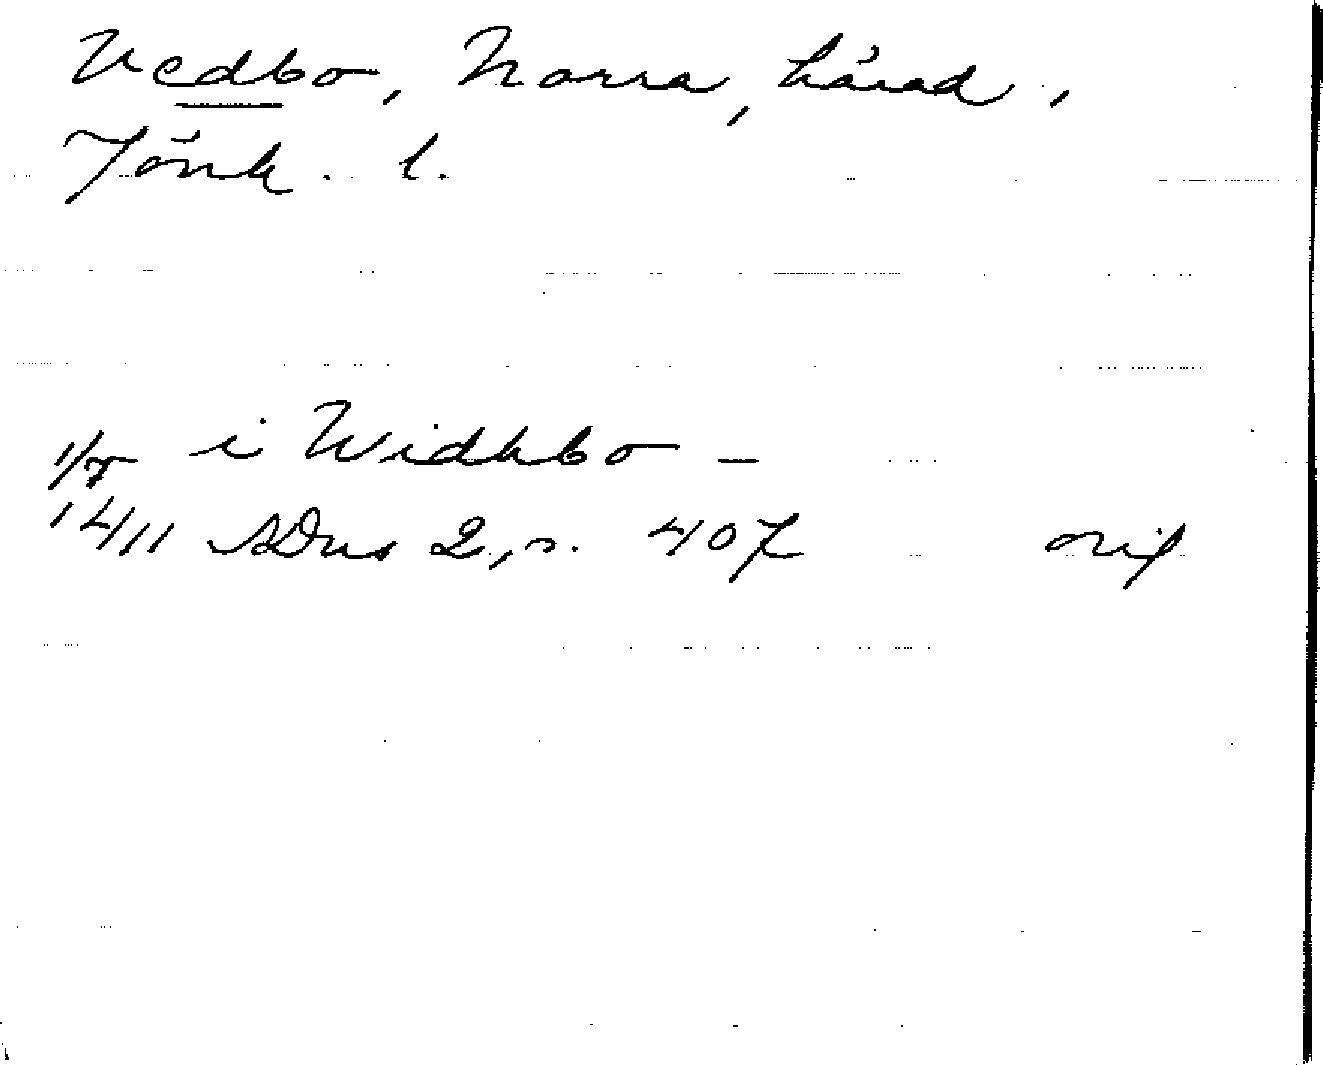 Vedbo, Norra, härad,
Jönk. l.
1/7 i Widhbo —
1411 SDns 2, s. 407 orig